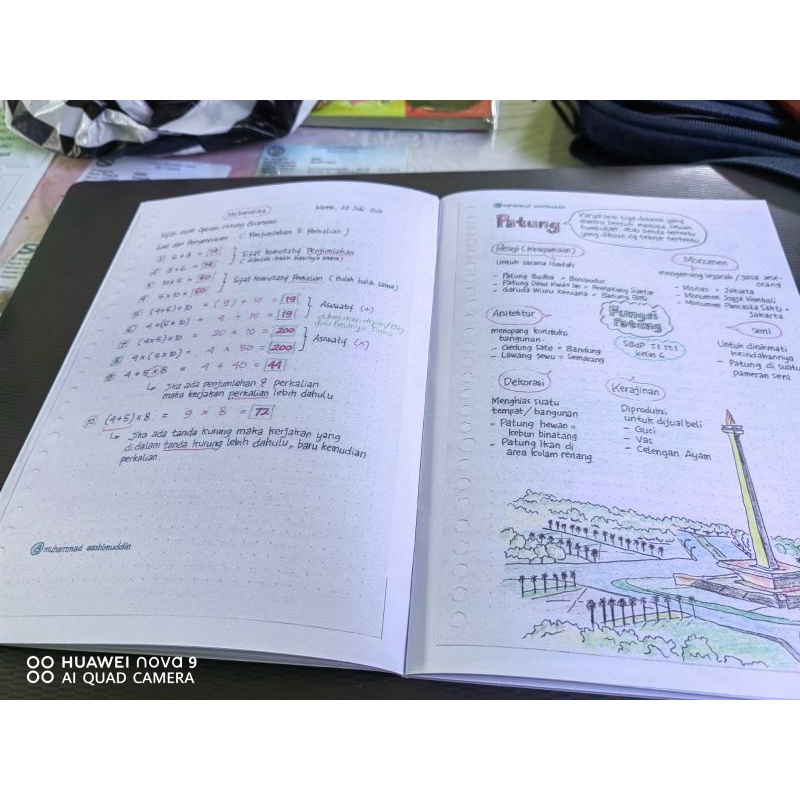 Matematika
Kamis, 22 Juli 2021
Sifat Sifat Operasi Hitung Bilangan
Soal dan Penyelesaian (Penjumlahan & Perkalian)
① 6 + 8 = 14
② 8 + 6 = 14
Sifat Komutatif Penjumlahan
(dibolak balik hasilnya sama)
③ 10 x 5 = 50
④ 5 x 10 = 50
Sifat Komutatif Perkalian (Bolak balik sama)
(4+5)+10 = (9) + 10 = 19
4+(5+10) = 4 + 15 = 19
Asosiatif (+)
(4x5)x10 = 20 x 10 = 200
4x(5x10) = 4 x 50 = 200
Asosiatif (x)
4+5x8 = 4 + 40 = 44
↳ Jika ada penjumlahan & perkalian
maka kerjakan perkalian lebih dahulu
10. (4+5)x8 = 9 x 8 = 72
↳ Jika ada tanda kurung maka kerjakan yang
di dalam tanda kurung lebih dahulu, baru kemudian
perkalian.
muhammad aashimuddin
muhammad aashimuddin
Patung
Karya seni tiga dimensi yang
meniru bentuk manusia, hewan
tumbuhan, atau benda tertentu
yang dibuat dg teknik tertentu
Religi (Keagamaan)
untuk sarana ibadah
- Patung Budha = Borobudur
- Patung Dewi Kwan Im = Pematang Siantar
- Garuda Wisnu Kencana = Badung, Bali
Monumen
mengenang sejarah / jasa sese-
orang
- Monas = Jakarta
- Monumen Jogja Kembali
- Monumen Pancasila Sakti =
Jakarta
Arsitektur
menopang konstruksi
bangunan
- Gedung Sate = Bandung
- Lawang Sewu = Semarang
Fungsi
Patung
SBdP T1 ST1
Kelas 6
Seni
Untuk dinikmati
keindahannya
- Patung di suatu
pameran seni
Dekorasi
Menghias suatu
tempat / bangunan
- Patung hewan =
kebun binatang
- Patung ikan di
area kolam renang
Kerajinan
Diproduksi
untuk dijual beli
- Guci
- Vas
- Celengan Ayam
HUAWEI nova 9
AI QUAD CAMERA